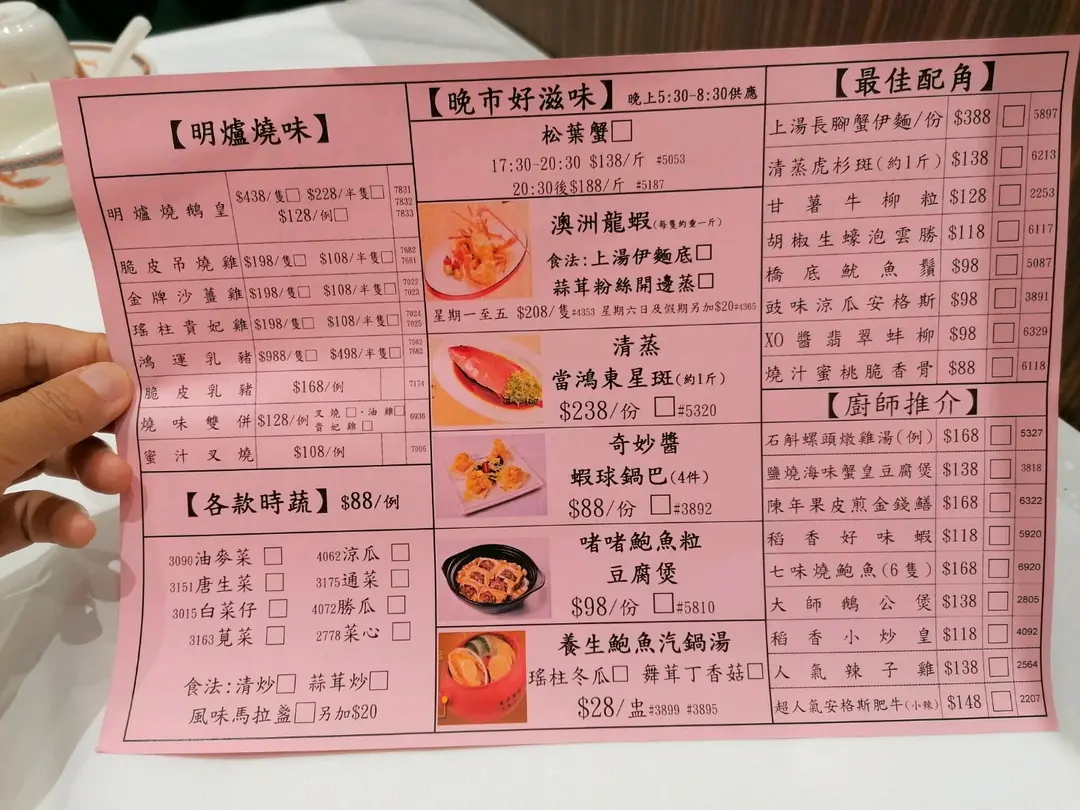 【明爐燒味】
明爐燒鵝皇 $438/隻□ $228/半隻□ 7831
$128/例□ 7832
7833
脆皮吊燒雞 $198/隻□ $108/半隻□ 7682
7681
金牌沙薑雞 $198/隻□ $108/半隻□ 7022
7023
瑤柱貴妃雞 $198/隻□ $108/半隻□ 7024
7025
鴻運乳豬 $988/隻□ $498/半隻□ 7562
7662
脆皮乳豬 $168/例 7174
燒味雙併 $128/例 叉燒□·油雞□ 6936
貴妃雞□
蜜汁叉燒 $108/例 7006
【各款時蔬】$88/例
3090油麥菜□ 4062涼瓜□
3151唐生菜□ 3175通菜□
3015白菜仔□ 4072勝瓜□
3163莧菜□ 2778菜心□
食法:清炒□ 蒜茸炒□
風味馬拉盞□另加$20
【晚市好滋味】晚上5:30-8:30供應
松葉蟹□
17:30-20:30 $138/斤 #5053
20:30後$188/斤 #5187
澳洲龍蝦(每隻約重一斤)
食法:上湯伊麵底□
蒜茸粉絲開邊蒸□
星期一至五 $208/隻#4353 星期六日及假期另加$20#4365
清蒸
當鴻東星斑(約1斤)
$238/份 □#5320
奇妙醬
蝦球鍋巴(4件)
$88/份 □#3892
啫啫鮑魚粒
豆腐煲
$98/份 □#5810
養生鮑魚汽鍋湯
瑤柱冬瓜□ 舞茸丁香菇□
$28/盅#3899 #3895
【最佳配角】
上湯長腳蟹伊麵/份 $388 □ 5897
清蒸虎杉斑(約1斤) $138 □ 6213
甘薯牛柳粒 $128 □ 2253
胡椒生蠔泡雲勝 $118 □ 6117
橋底魷魚鬚 $98 □ 5087
豉味涼瓜安格斯 $98 □ 3891
XO醬翡翠蚌柳 $98 □ 6329
燒汁蜜桃脆香骨 $88 □ 6118
【廚師推介】
石斛螺頭燉雞湯(例) $168 □ 5327
鹽燒海味蟹皇豆腐煲 $138 □ 3818
陳年果皮煎金錢鱔 $168 □ 6322
稻香好味蝦 $118 □ 5920
七味燒鮑魚(6隻) $168 □ 6920
大師鵝公煲 $138 □ 2805
稻香小炒皇 $118 □ 4092
人氣辣子雞 $138 □ 2564
超人氣安格斯肥牛(小辣) $148 □ 2207